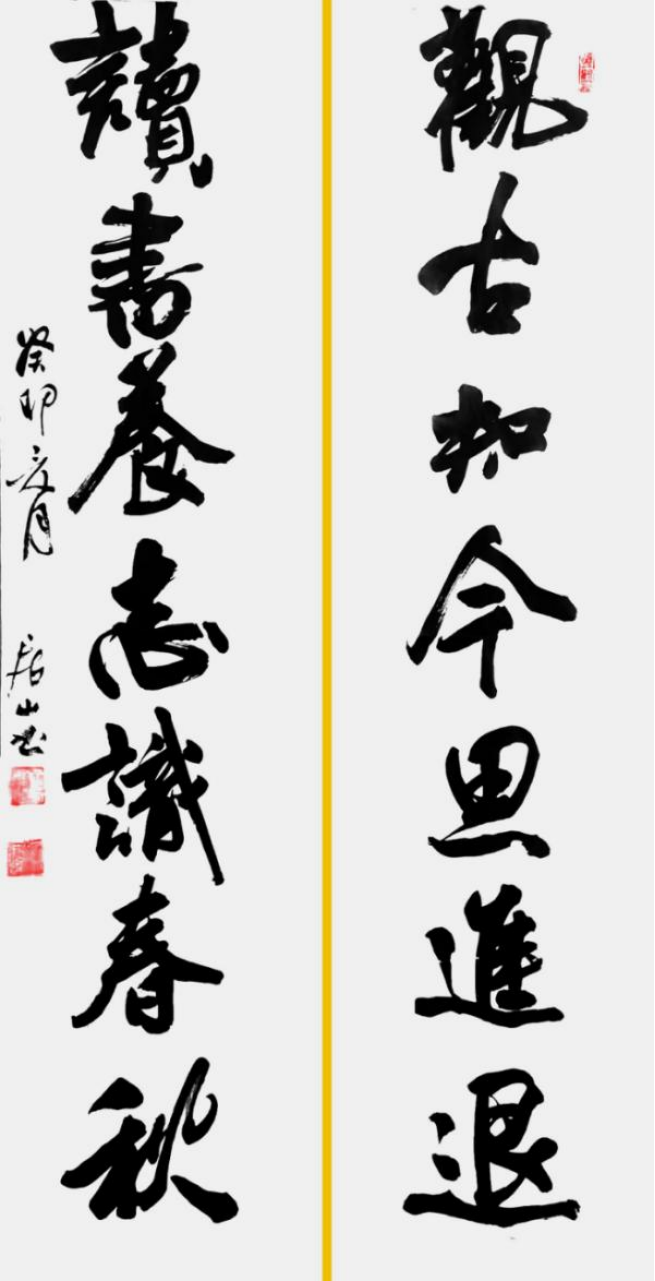 觀古知今思進退
讀書養志識春秋
癸卯之月
居山書